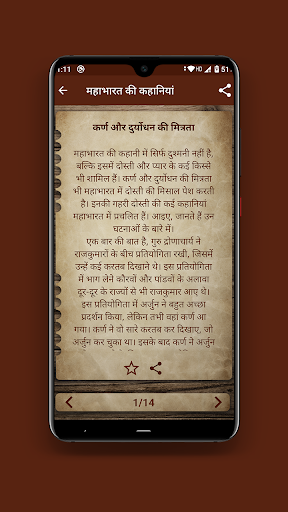 :11
महाभारत की कहानियां
कर्ण और दुर्योधन की मित्रता
महाभारत की कहानी में सिर्फ दुश्मनी नहीं है,
बल्कि इसमें दोस्ती और प्यार के कई किस्से
भी शामिल हैं। कर्ण और दुर्योधन की मित्रता
भी महाभारत में दोस्ती की मिसाल पेश करती
है। इनकी गहरी दोस्ती की कई कहानियां
महाभारत में प्रचलित हैं। आइए, जानते हैं उन
घटनाओं के बारे में।
एक बार की बात है, गुरु द्रोणाचार्य ने
राजकुमारों के बीच प्रतियोगिता रखी, जिसमें
उन्हें कई करतब दिखाने थे। इस प्रतियोगिता
में भाग लेने कौरवों और पांडवों के अलावा
दूर-दूर के राज्यों से भी राजकुमार आए थे।
इस प्रतियोगिता में अर्जुन ने बहुत अच्छा
प्रदर्शन किया, लेकिन तभी वहां कर्ण आ
गया। कर्ण ने वो सारे करतब कर दिखाए, जो
अर्जुन कर चुका था। इसके बाद कर्ण ने अर्जुन
1/14